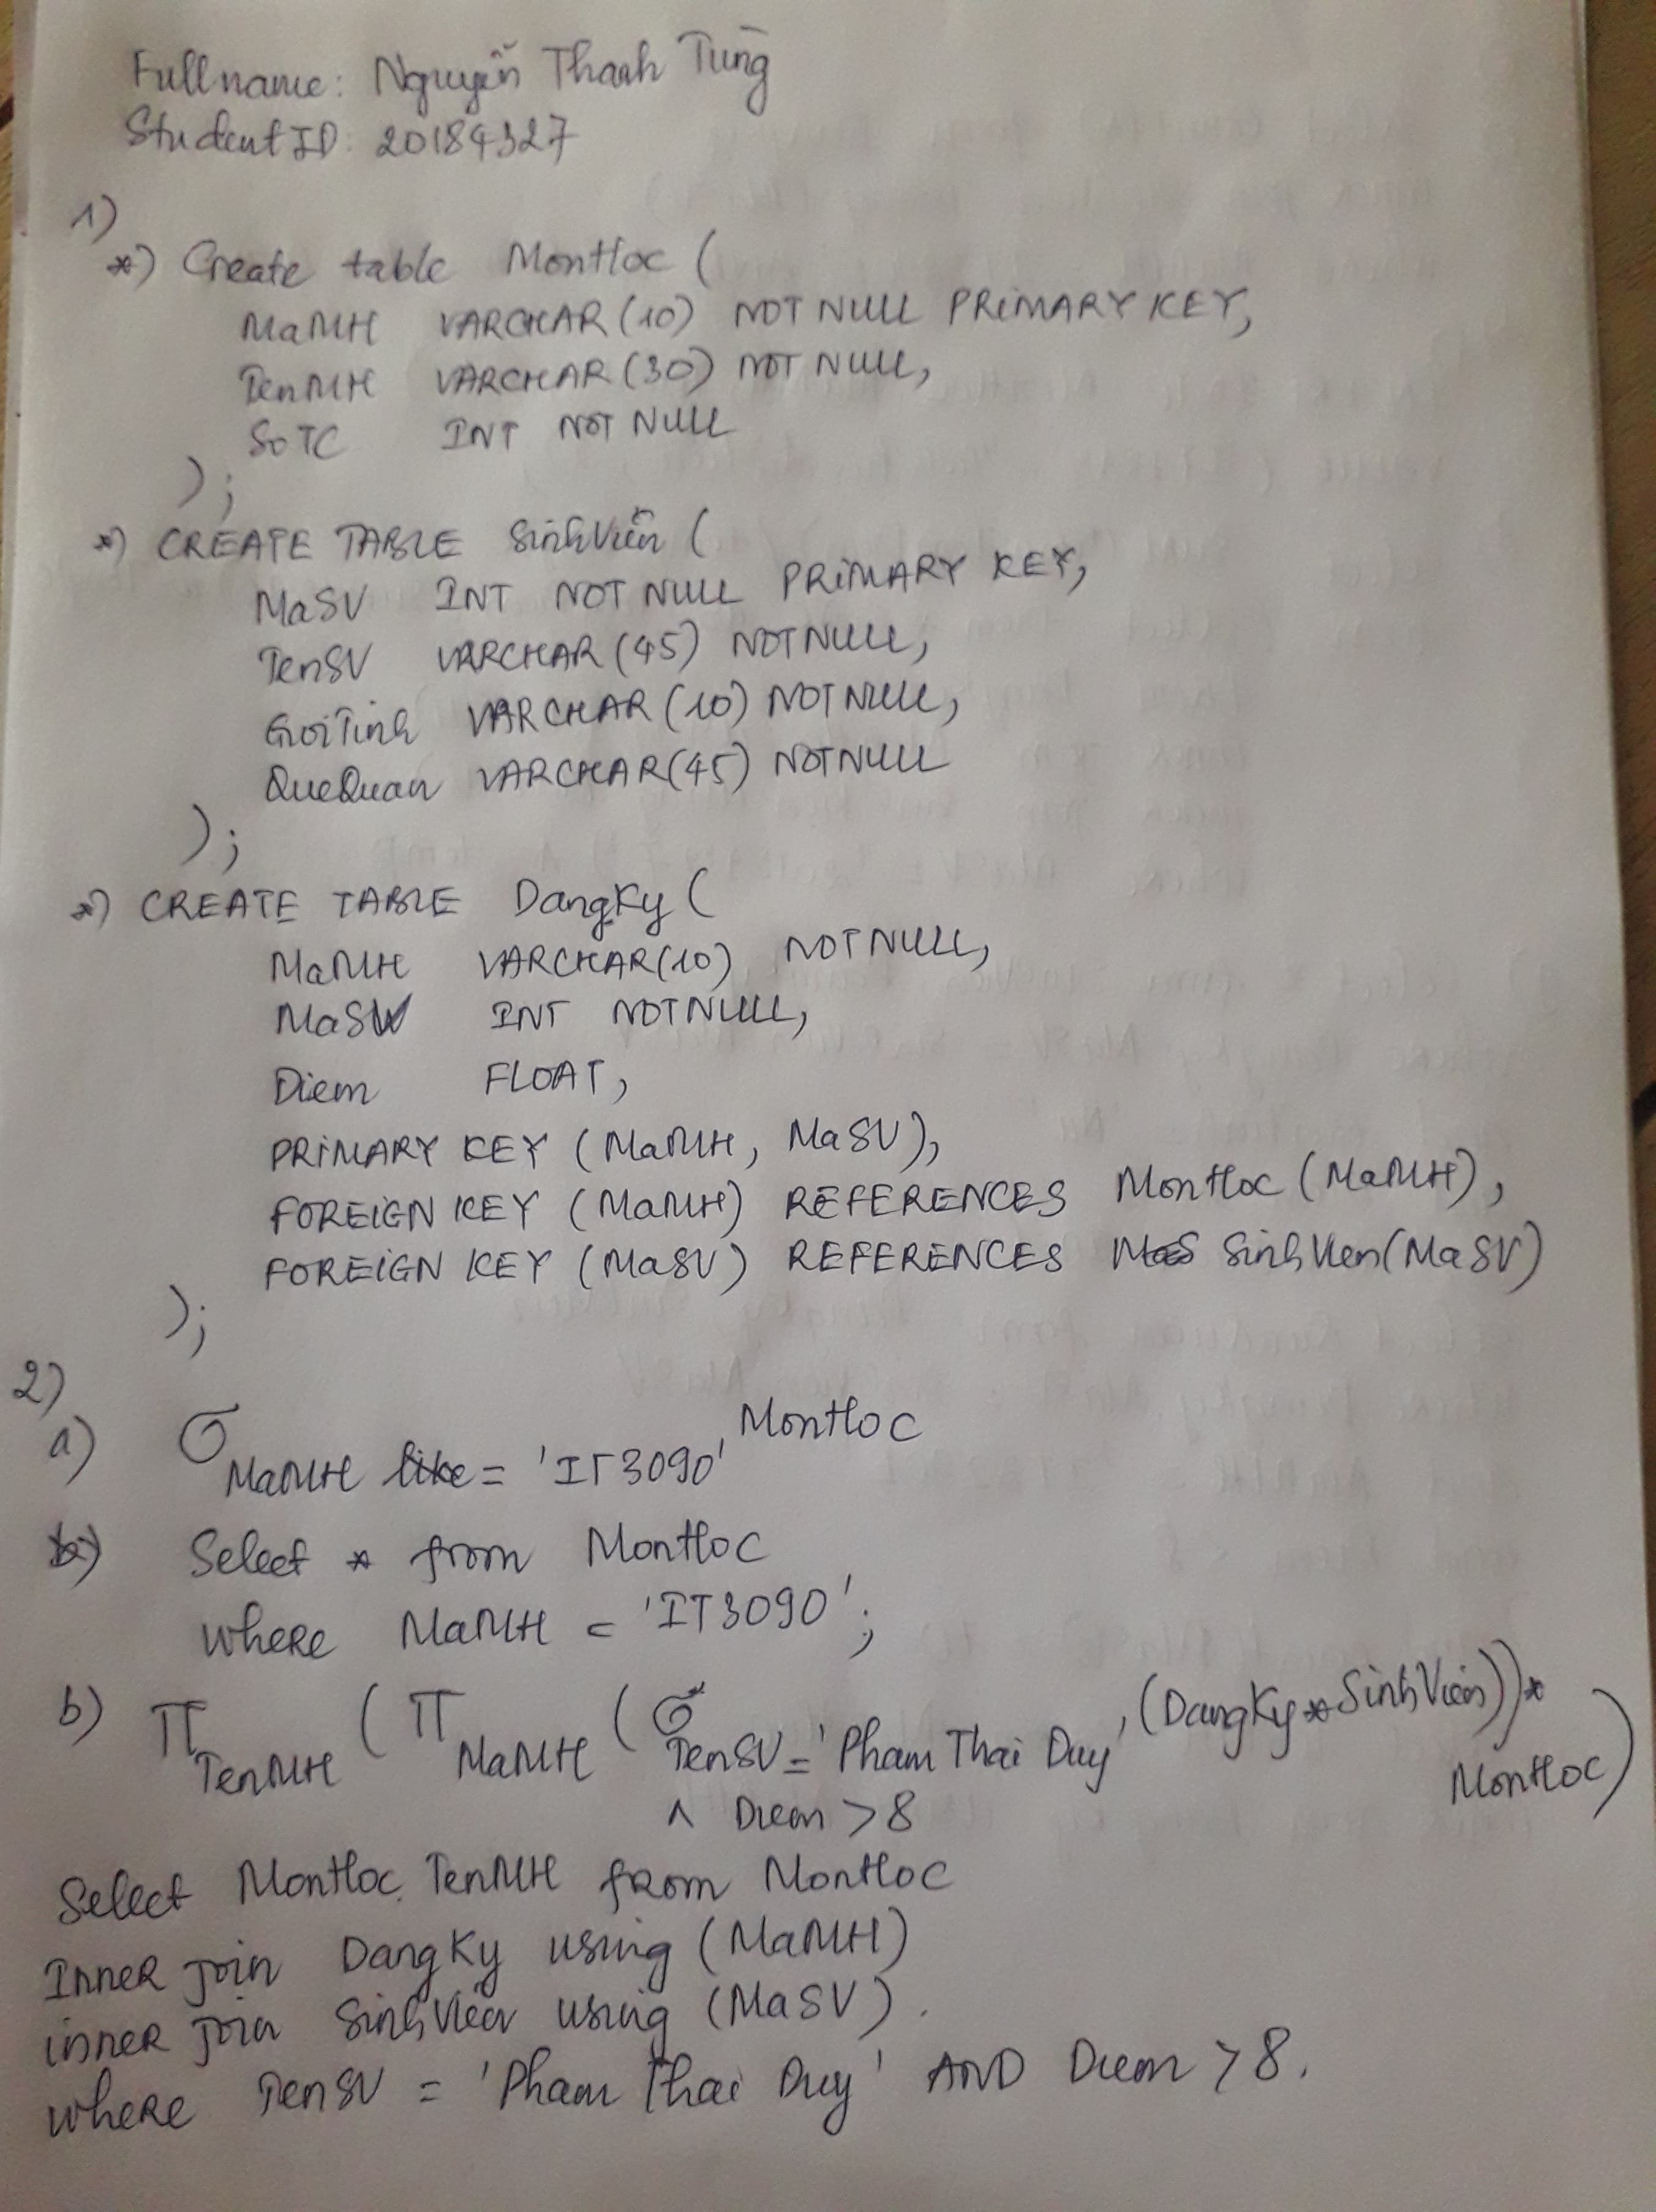 Fullname: Nguyễn Thanh Tùng
Student ID: 20184327
1)
*) Create table MonHoc (
MaMH VARCHAR(10) NOT NULL PRIMARY KEY,
TenMH VARCHAR(30) NOT NULL,
SoTC INT NOT NULL
);
*) CREATE TABLE SinhViên (
MaSV INT NOT NULL PRIMARY KEY,
TenSV VARCHAR(45) NOT NULL,
GioiTinh VARCHAR(10) NOT NULL,
QueQuan VARCHAR(45) NOT NULL
);
*) CREATE TABLE DangKy (
MaMH VARCHAR(10) NOT NULL,
MaSV INT NOT NULL,
Diem FLOAT,
PRIMARY KEY (MaMH, MaSV),
FOREIGN KEY (MaMH) REFERENCES MonHoc (MaMH),
FOREIGN KEY (MaSV) REFERENCES SinhVien(MaSV)
);
2)
a) σ MaMH = 'IT3090' MonHoc
Select * from MonHoc
where MaMH = 'IT3090';
b) π TenMH (π MaMH (σ TenSV = 'Pham Thai Duy' (DangKy * SinhViên)) *
∧ Diem > 8 MonHoc)
Select MonHoc.TenMH from MonHoc
Inner join DangKy using (MaMH)
inner join SinhViên using (MaSV).
where TenSV = 'Pham Thai Duy' AND Diem > 8.